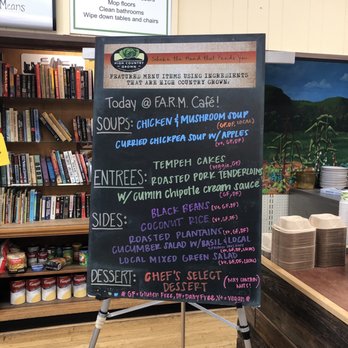 Mop floors
Clean bathrooms
Wipe down tables and chairs
HIGH COUNTRY GROWN
Shake the Hand that Feeds You
FEATURED MENU ITEMS USING INGREDIENTS
THAT ARE HIGH COUNTRY GROWN:
Today @ F.A.R.M. Café!
SOUPS: CHICKEN & MUSHROOM SOUP
(GF, DF, LOCAL)
CURRIED CHICKPEA SOUP W/ APPLES
(V+, GF, DF)
TEMPEH CAKES
ENTREES: ROASTED PORK TENDERLOINS
W/ cumin chipotle cream sauce
SIDES: BLACK BEANS (V+, GF, DF)
COCONUT RICE (V+, GF, DF)
ROASTED PLANTAINS (V+, GF, DF)
CUCUMBER SALAD W/ BASIL & LOCAL
LOCAL MIXED GREEN SALAD
DESSERT: CHEF'S SELECT
DESSERT
* GF = Gluten Free, DF = Dairy Free, V+ = Vegan *